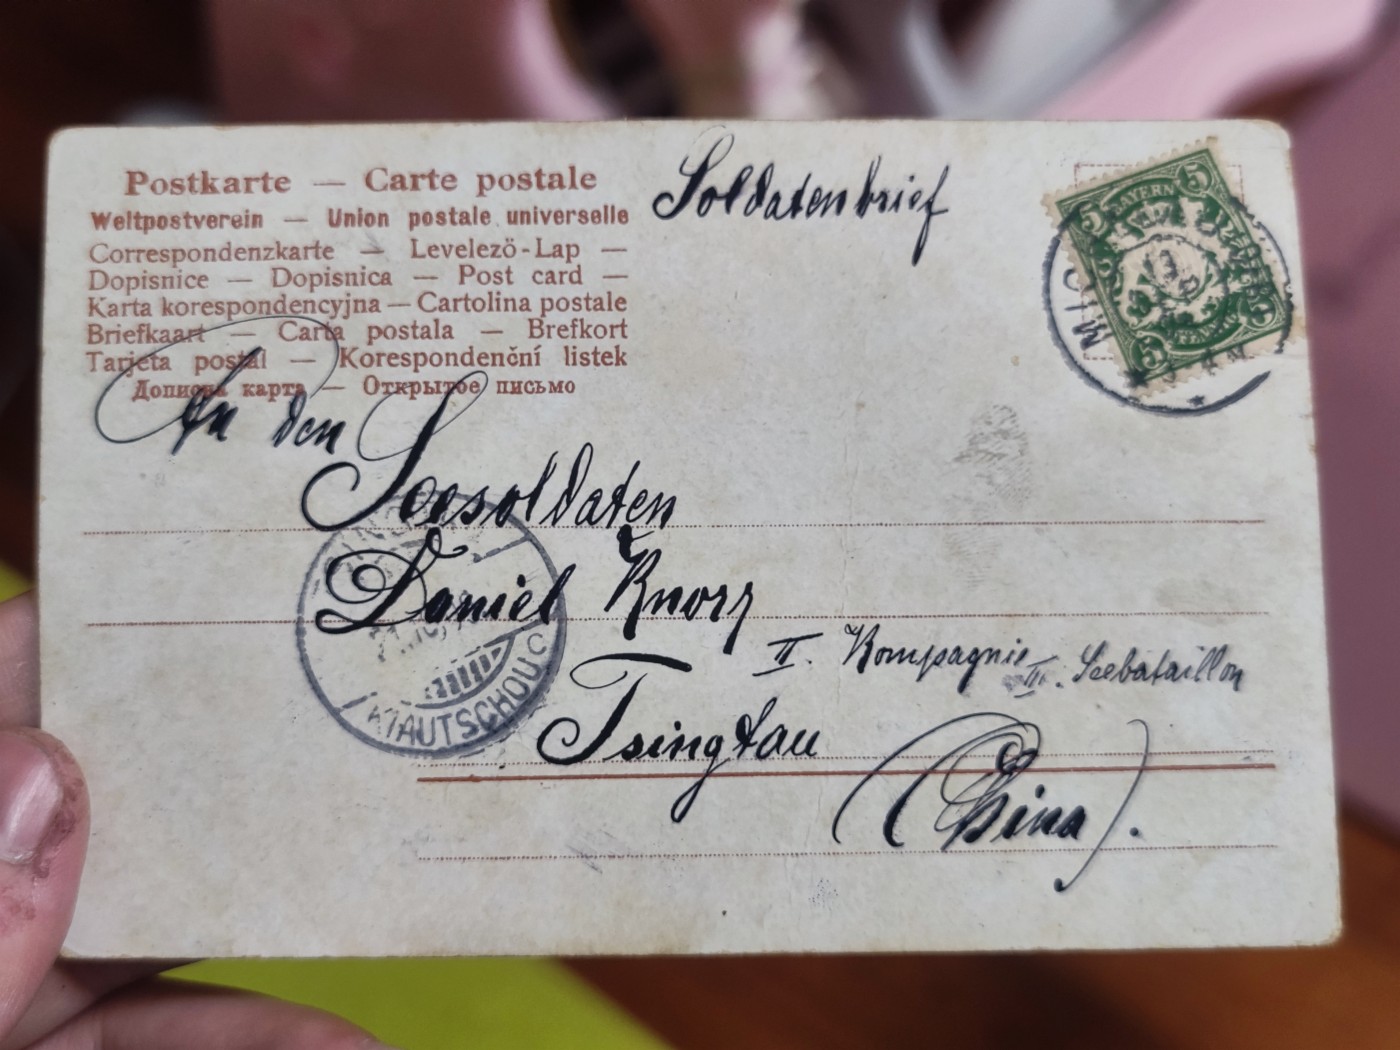 Postkarte — Carte postale
Weltpostverein — Union postale universelle
Correspondenzkarte — Levelező-Lap —
Dopisnice — Dopisnica — Post card —
Karta korespondencyjna — Cartolina postale
Briefkaart — Carta postala — Brefkort
Tarjeta postal — Korespondenční listek
Дописна карта — Открытое письмо
Soldatenbrief
5 BAYERN 5
An den
Seesoldaten
Daniel Knorz
II. Kompagnie III. Seebataillon
Tsingtau
(China).
KIAUTSCHOU